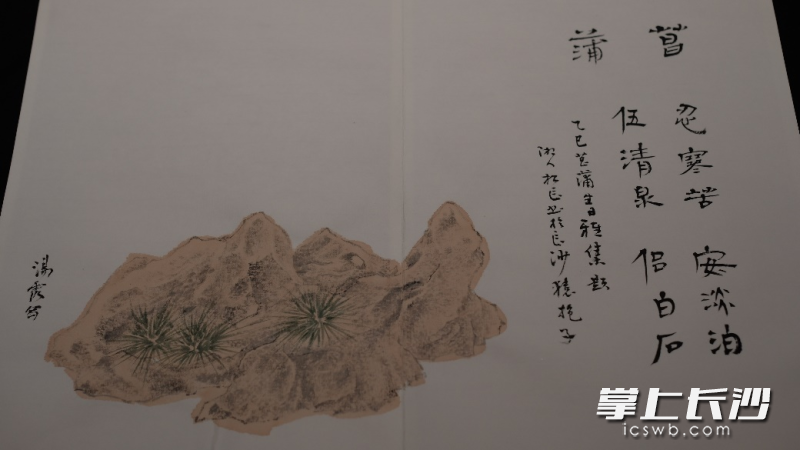 菖蒲
忍寒苦 安淡泊
伍清泉 侣白石
乙巳菖蒲生日雅集题
湘人松长书于长沙猿抱子
汤露写
掌上长沙
icswb.com